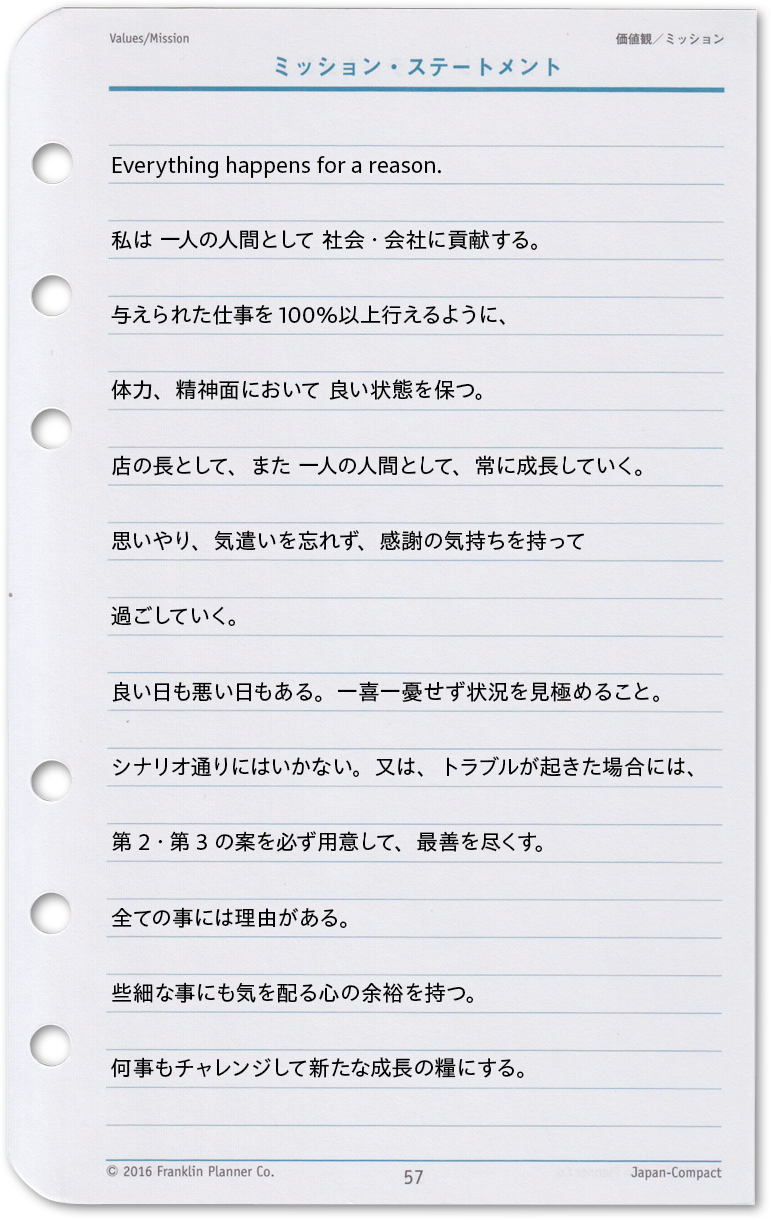 Values/Mission 価値観／ミッション
ミッション・ステートメント
Everything happens for a reason.
私は 一人の人間として 社会・会社に貢献する。
与えられた仕事を 100%以上行えるように、
体力、精神面において 良い状態を保つ。
店の長として、また 一人の人間として、常に成長していく。
思いやり、気遣いを忘れず、感謝の気持ちを持って
過ごしていく。
良い日も悪い日もある。一喜一憂せず状況を見極めること。
シナリオ通りにはいかない。又は、トラブルが起きた場合には、
第 2・第 3 の案を必ず用意して、最善を尽くす。
全ての事には理由がある。
些細な事にも気を配る心の余裕を持つ。
何事もチャレンジして新たな成長の糧にする。
© 2016 Franklin Planner Co. 57 Japan-Compact